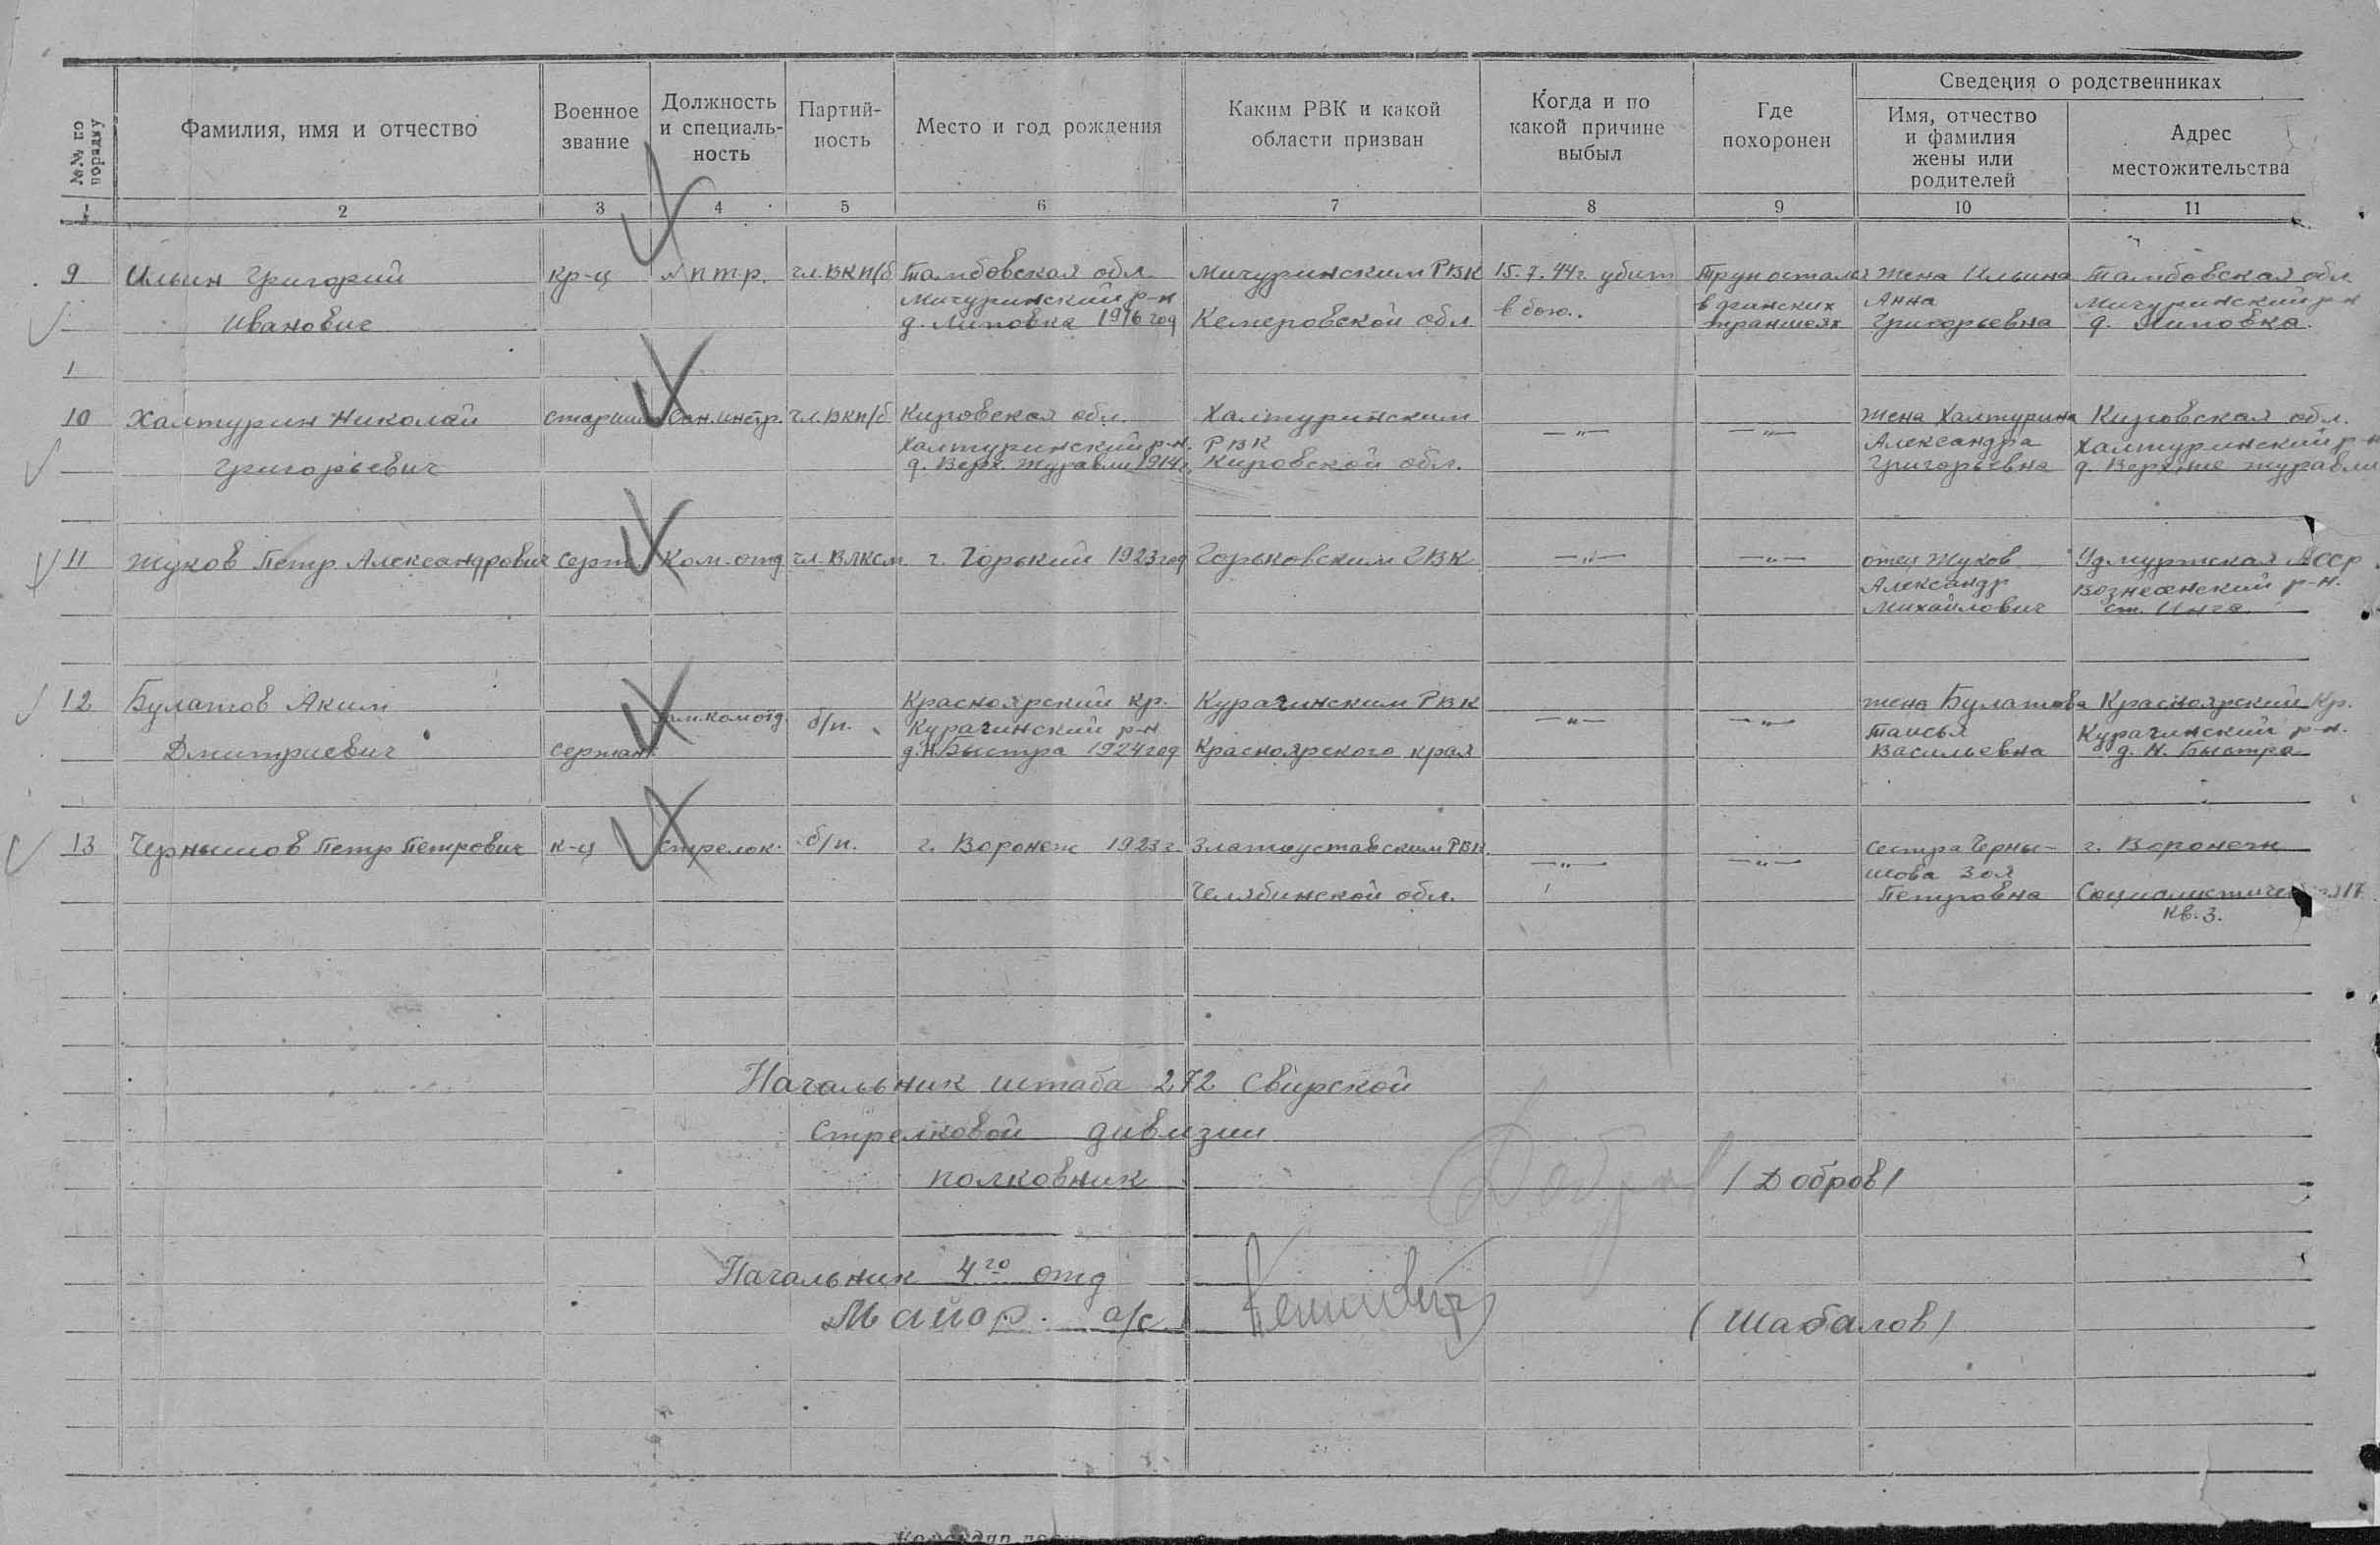 №№ по порядку
Фамилия, имя и отчество
Военное звание
Должность и специаль-ность
Партий-ность
Место и год рождения
Каким РВК и какой области призван
Когда и по какой причине выбыл
Где похоронен
Сведения о родственниках
Имя, отчество и фамилия жены или родителей
Адрес местожительства
1 2 3 4 5 6 7 8 9 10 11
9 Ильин Григорий кр-ц птр. чл.ВКП/б Тамбовская обл. Мичуринским РВК 15.7.44г. убит Труп остался жена Ильина Тамбовская обл
Мичуринский р-н в бою. в финских Анна Мичуринский р-н
Иванович д. Липовка 1916 год Кемеровской обл траншеях Григорьевна д. Липовка.
1
10 Халтурин Николай старшина Сан.инстр. чл.ВКП/б Кировская обл. Халтуринским —"— —"— жена Халтурина Кировская обл.
Халтуринский р-н. РВК Александра Халтуринский р-н
Григорьевич д. Верх. Журавли 1914г. Кировской обл. Григорьевна д. Верхние журавли
11 Жуков Петр Александрович серж. Ком. отд чл.ВЛКСМ г. Горький 1923 год Горьковским ГВК —"— —"— отец Жуков Удмуртская АССР
Александр Вознесенский р-н.
Михайлович ст. Инга
12 Булатов Аким Красноярский кр. Курагинским РВК жена Булатова Красноярский Кр.
пом.ком отд. б/п. Курагинский р-н —"— —"— Таисья Курагинский р-н.
Дмитриевич сержант д. Н. Быстра 1924 год Красноярского края Васильевна д. Н. Быстра
13 Чернышов Петр Петрович к-ц стрелок. б/п. г. Воронеж 1923 г. Златоустовским РВК. —"— —"— сестра Черны- г. Воронеж
шова Зоя
Челябинской обл. Петровна 17
Кв. 3.
Начальник штаба 272 Свирской
стрелковой дивизии
полковник /Добров/
Начальник 4го отд
Майор а/с (Шабалов)